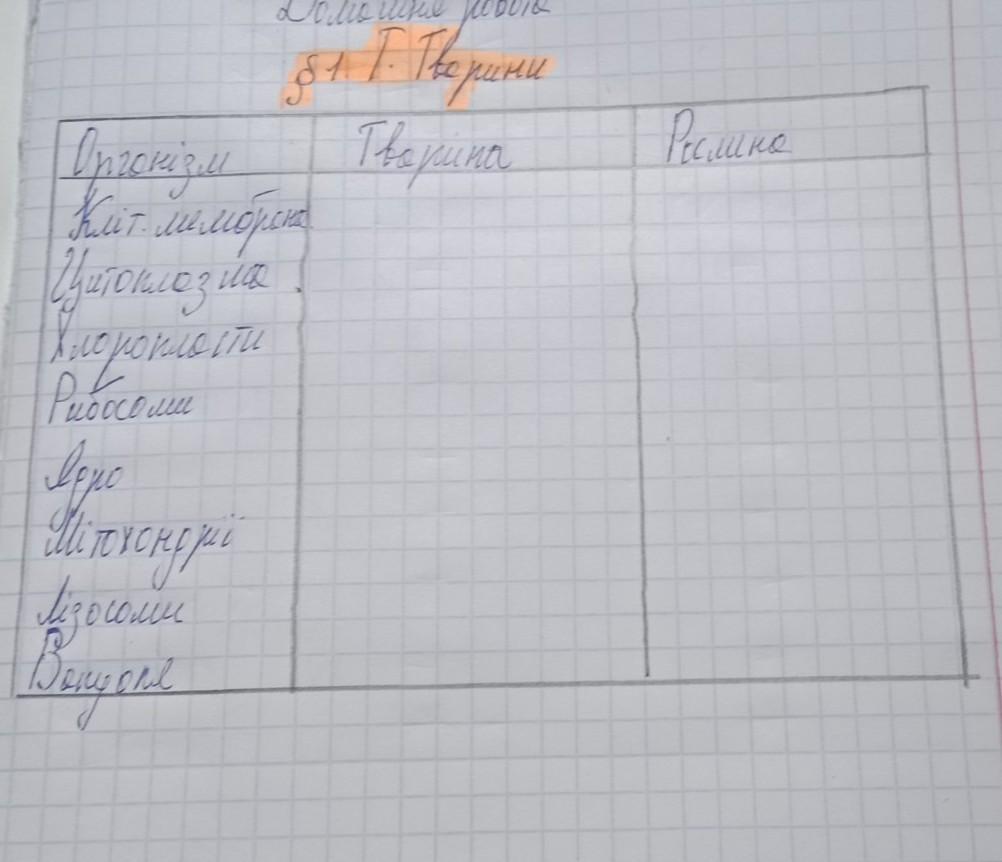 Домашня робота
§1. Т. Тварини
Організм Тварина Рослина
Кліт. мембрана
Цитоплазма
Хлоропласти
Рибосоми
Ядро
Мітохондрії
Лізосоми
Вакуоля